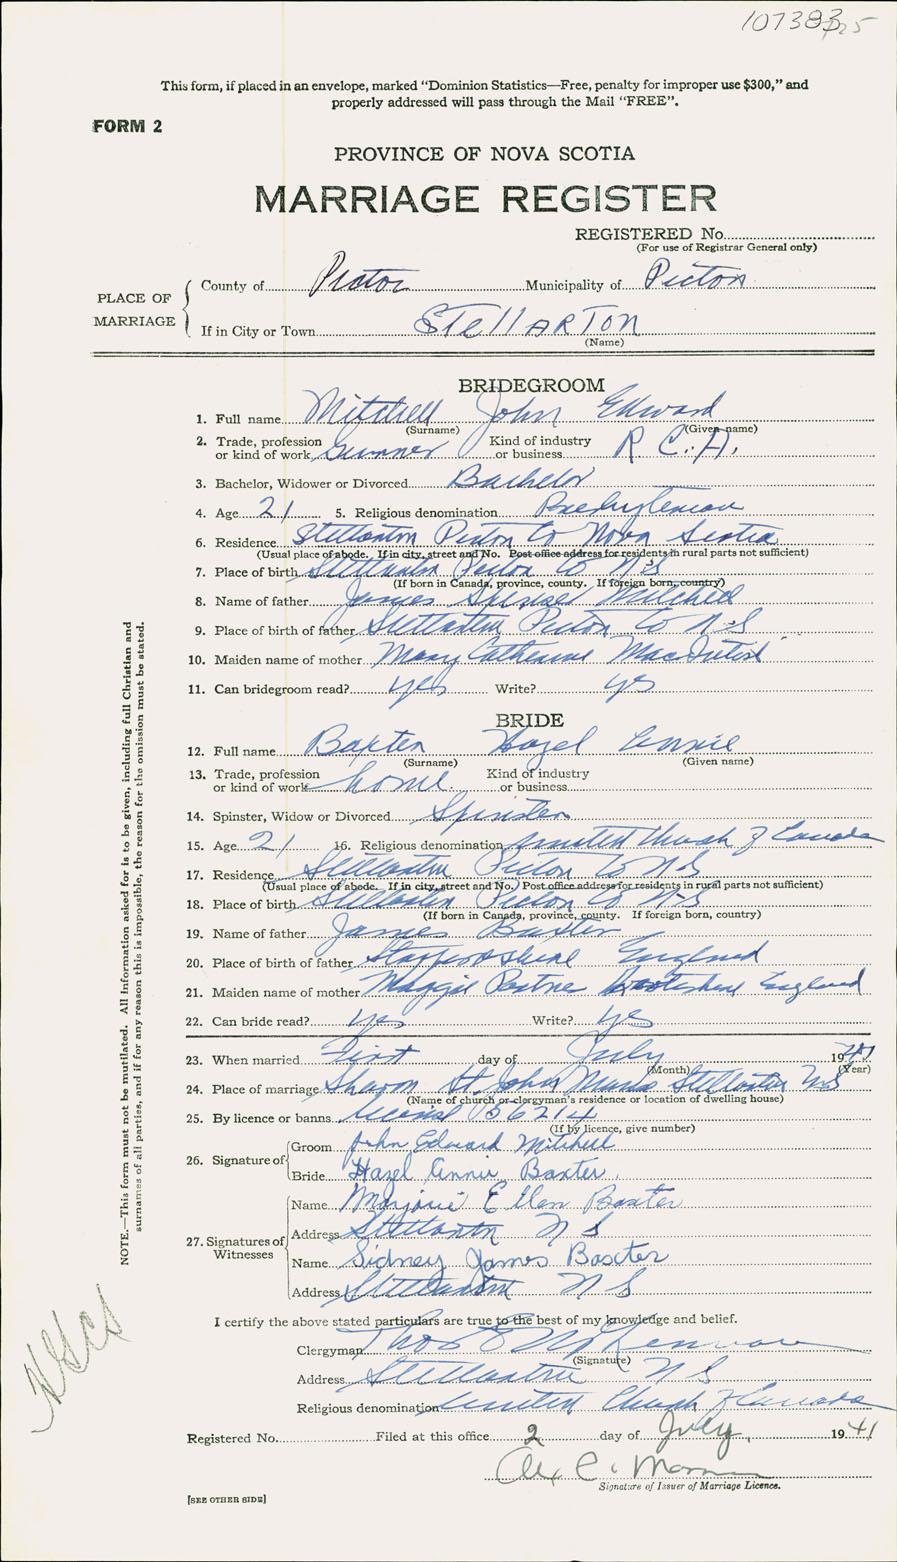 107383
This form, if placed in an envelope, marked “Dominion Statistics—Free, penalty for improper use $300,” and
properly addressed will pass through the Mail “FREE”.
FORM 2
PROVINCE OF NOVA SCOTIA
MARRIAGE REGISTER
REGISTERED No.
(For use of Registrar General only)
PLACE OF MARRIAGE
County of Pictou Municipality of Pictou
If in City or Town STellARTON
(Name)
BRIDEGROOM
1. Full name Mitchell John Edward
(Surname) (Given name)
2. Trade, profession or kind of work Gunner Kind of industry or business R. C. A.
3. Bachelor, Widower or Divorced Bachelor
4. Age 21 5. Religious denomination Presbyterian
6. Residence Stellarton Pictou Co Nova Scotia
(Usual place of abode. If in city, street and No. Post office address for residents in rural parts not sufficient)
7. Place of birth Stellarton Pictou Co N.S
(If born in Canada, province, county. If foreign born, country)
8. Name of father James Mitchell
9. Place of birth of father Stellarton Pictou Co N.S
10. Maiden name of mother Mary Catherine MacIntosh
11. Can bridegroom read? yes Write? yes
BRIDE
12. Full name Baxter Hazel Annie
(Surname) (Given name)
13. Trade, profession or kind of work home. Kind of industry or business
14. Spinster, Widow or Divorced Spinster
15. Age 21 16. Religious denomination United Church of Canada
17. Residence Stellarton Pictou Co N S
(Usual place of abode. If in city, street and No. Post office address for residents in rural parts not sufficient)
18. Place of birth Stellarton Pictou Co N.S
(If born in Canada, province, county. If foreign born, country)
19. Name of father James Baxter
20. Place of birth of father Staffordshire England
21. Maiden name of mother Maggie England
22. Can bride read? yes Write? yes
23. When married First day of July 1941
(Month) (Year)
24. Place of marriage Sharon St. John Manse Stellarton N S
(Name of church or clergyman's residence or location of dwelling house)
25. By licence or banns license B6214
(If by licence, give number)
26. Signature of
Groom John Edward Mitchell
Bride Hazel Annie Baxter.
27. Signatures of Witnesses
Name Marjorie Ellen Baxter
Address Stellarton N S
Name Sidney James Baxter
Address Stellarton N S
I certify the above stated particulars are true to the best of my knowledge and belief.
Clergyman
(Signature)
Address Stellarton N S
Religious denomination United Church of Canada
Registered No. Filed at this office 2 day of July, 1941
Signature of Issuer of Marriage Licence.
[SEE OTHER SIDE]
NOTE.—This form must not be mutilated. All information asked for is to be given, including full Christian and
surnames of all parties, and if for any reason this is impossible, the reason for the omission must be stated.